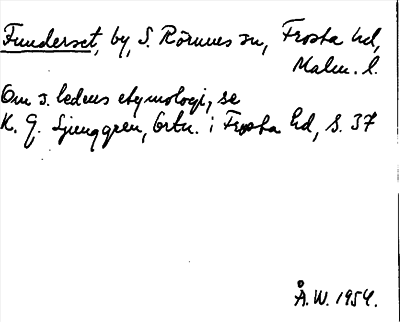 Funderset, by, S. Rörums sn, Frosta hd,
Malm. l.
Om s. ledens etymologi, se
K. G. Ljunggren, Ortn. i Frosta hd, s. 37
Å.W. 1954.